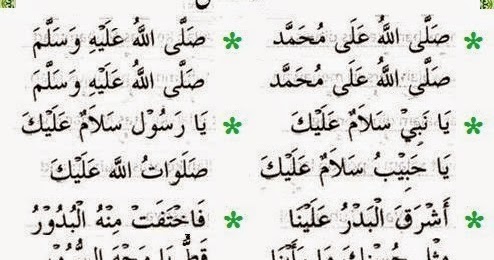 صَلَّى اللهُ عَلَى مُحَمَّد * صَلَّى اللهُ عَلَيْهِ وَسَلَّمَ *
صَلَّى اللهُ عَلَى مُحَمَّد صَلَّى اللهُ عَلَيْهِ وَسَلَّمَ
يَا نَبِيْ سَلَامٌ عَلَيْكَ * يَا رَسُوْل سَلَامٌ عَلَيْكَ *
يَا حَبِيْبُ سَلَامٌ عَلَيْكَ صَلَوَاتُ اللهِ عَلَيْكَ
أَشْرَقَ الْبَدْرُ عَلَيْنَا * فَاخْتَفَتْ مِنْهُ الْبُدُوْرُ *
مِثْلَ حُسْنِكَ مَا رَأَيْنَا قَطُّ يَا وَجْهَ السُّرُوْرِ